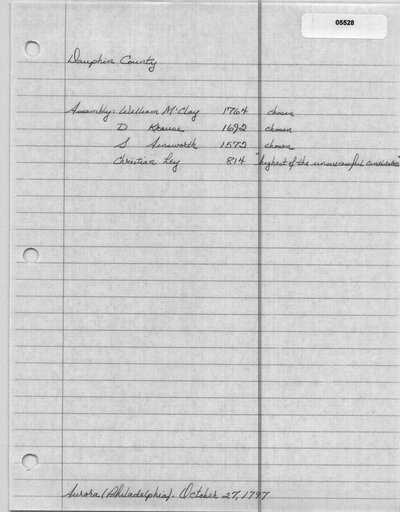 05528
Dauphin County
Assembly: William M'Clay 1764 chosen
D Krause 1692 chosen
S Ainsworth 1572 chosen
Christian Ley 814 "highest of the unsuccessful candidates"
Aurora (Philadelphia). October 27, 1797